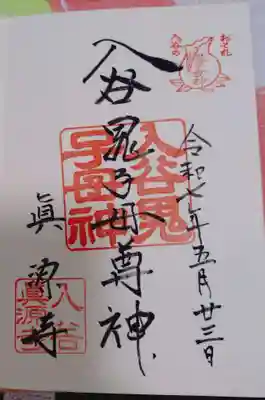 おそれ
入谷の
令和七年五月廿三日
入谷鬼子母尊神
眞源寺
入谷鬼
子母神
入谷
眞源寺